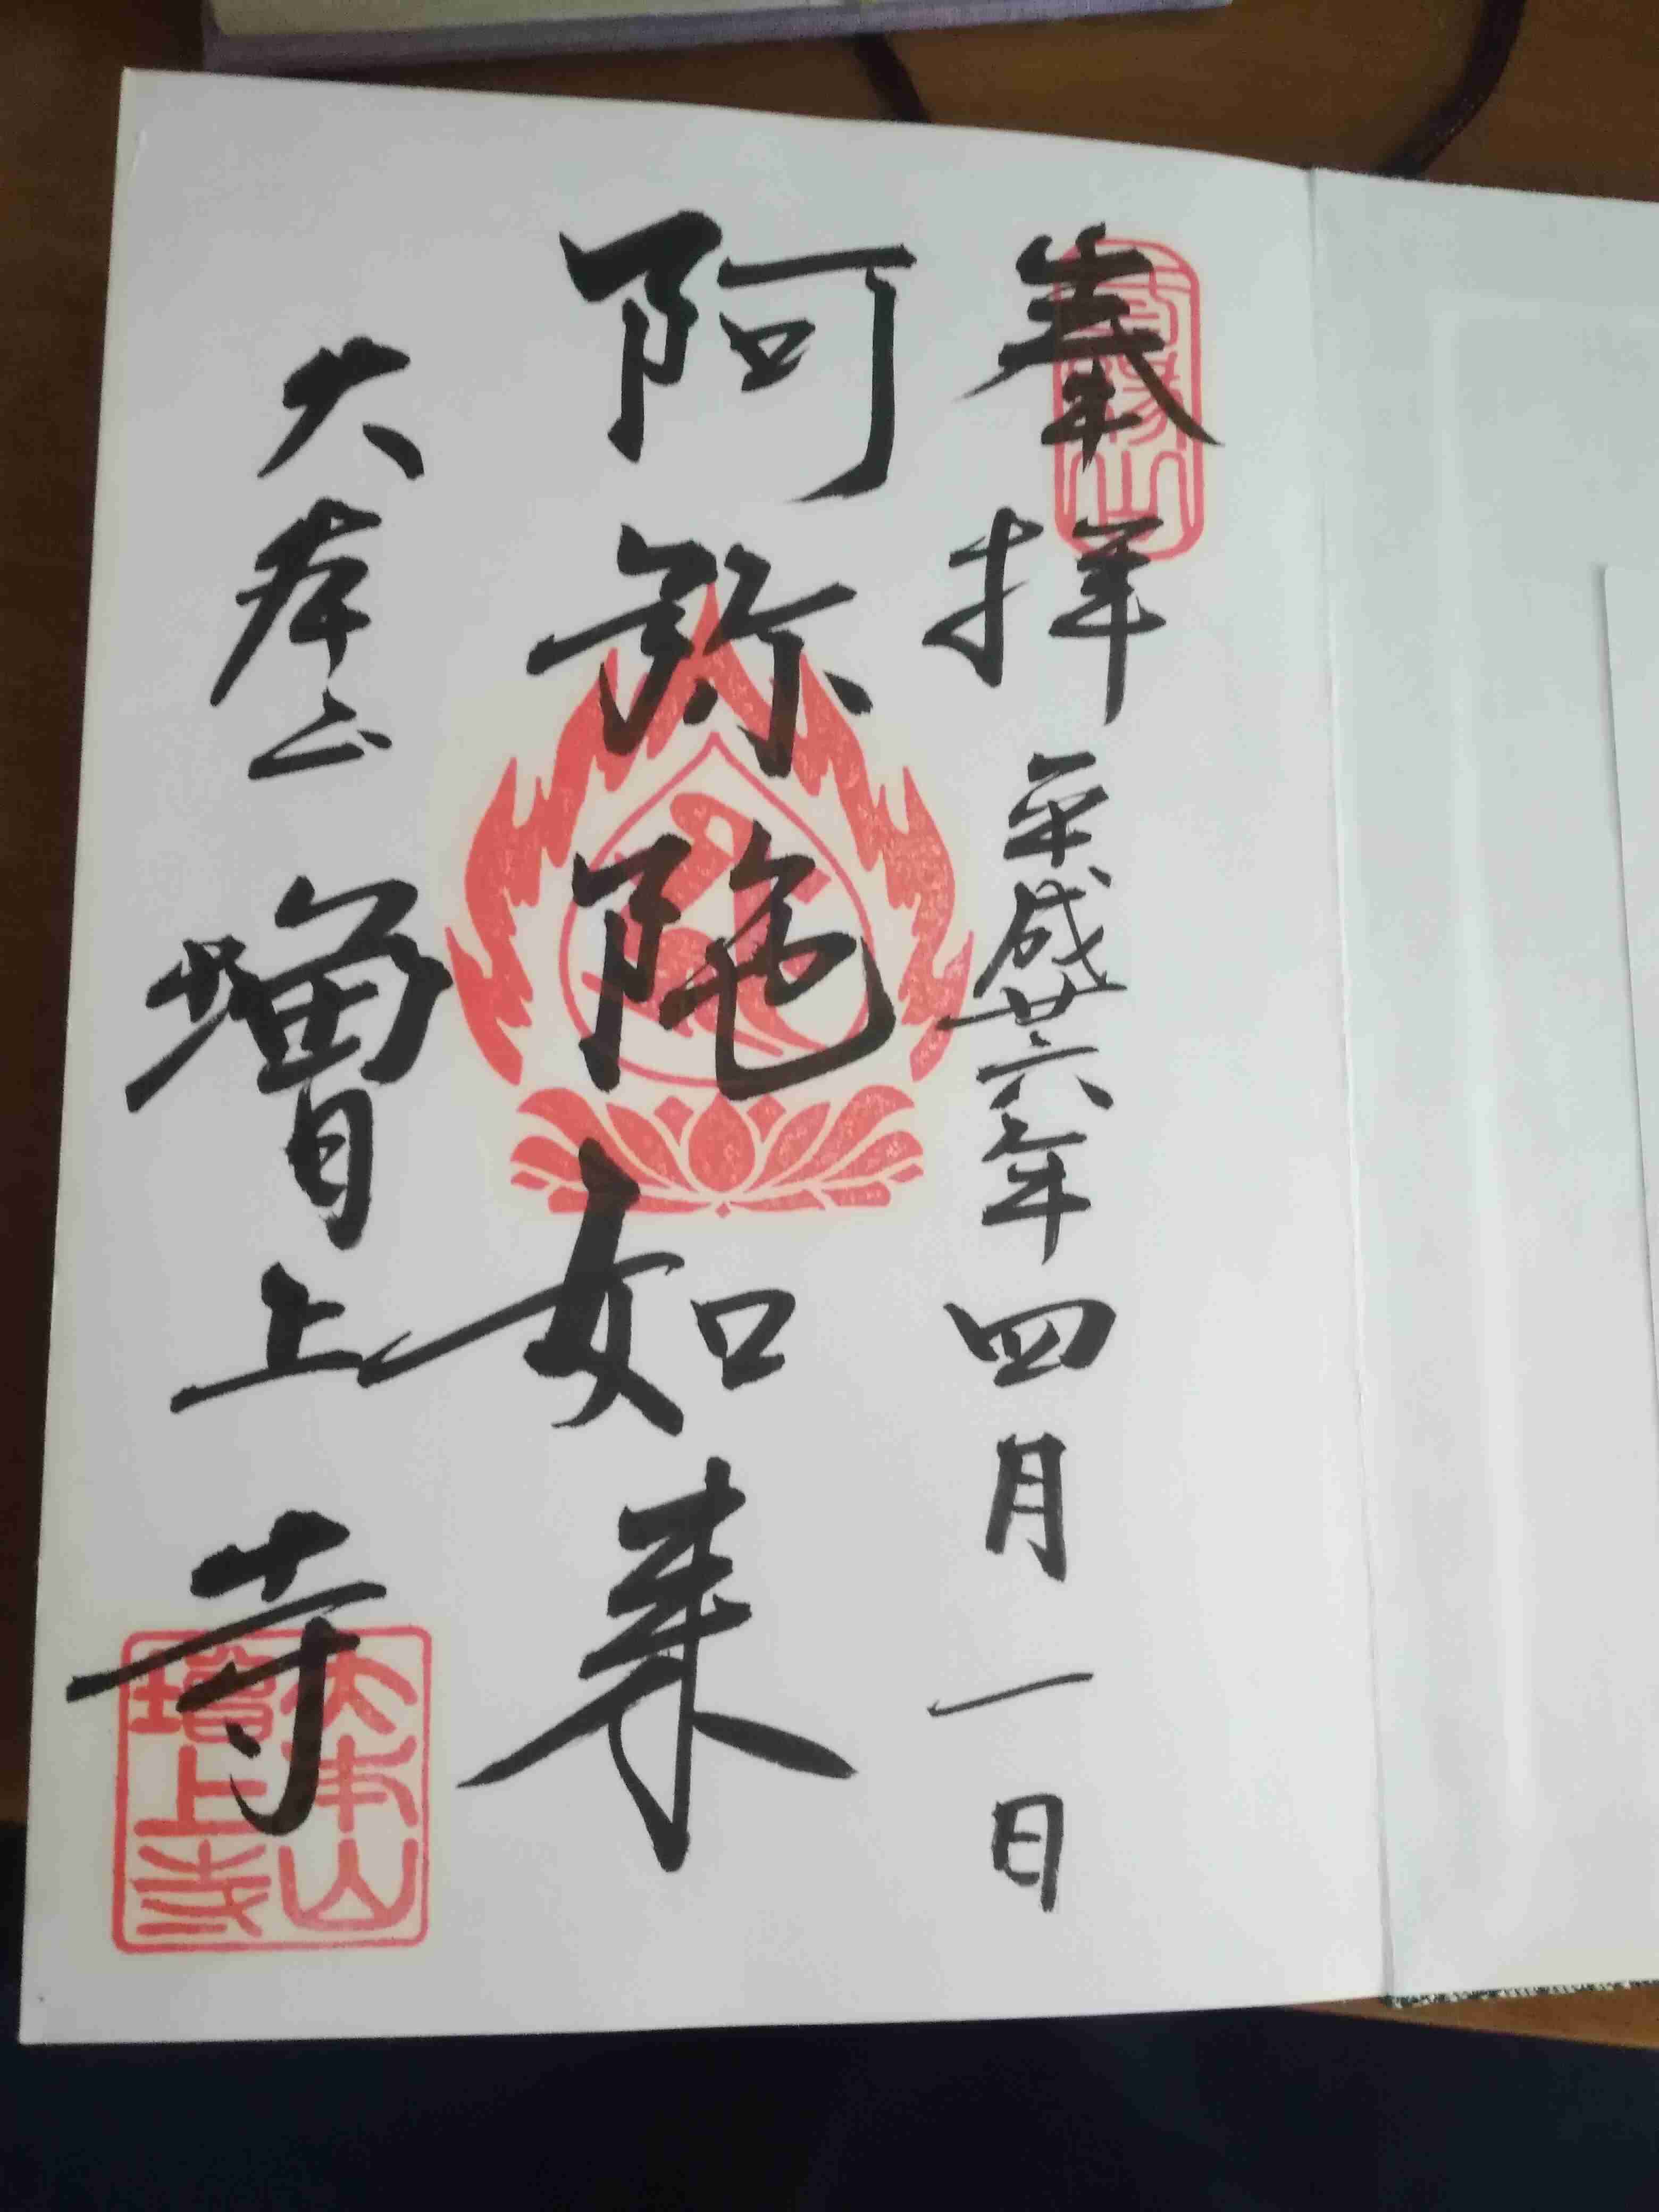 奉拝 平成廿六年四月一日
阿弥陀如来
大本山 増上寺
三縁山
大本山
増上寺